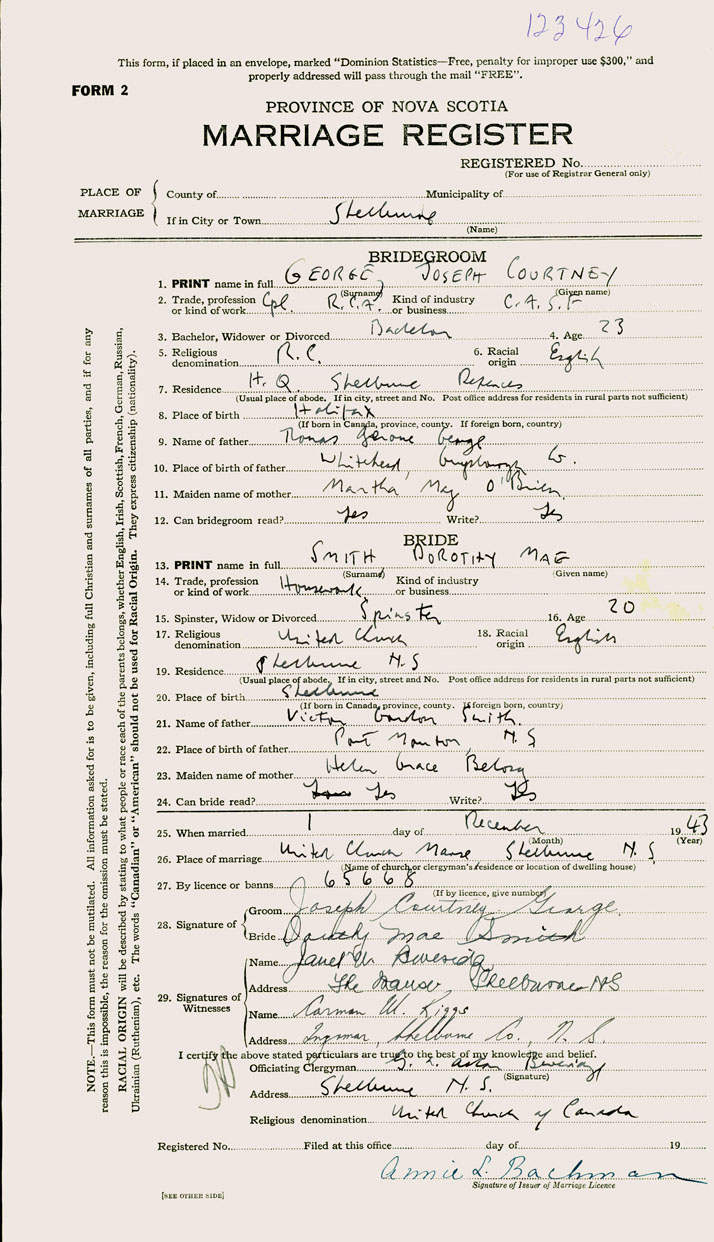 123426
This form, if placed in an envelope, marked "Dominion Statistics—Free, penalty for improper use $300," and
properly addressed will pass through the mail "FREE".
FORM 2
PROVINCE OF NOVA SCOTIA
MARRIAGE REGISTER
REGISTERED No.
(For use of Registrar General only)
PLACE OF MARRIAGE
County of Municipality of
If in City or Town Shelburne
(Name)
NOTE.—This form must not be mutilated. All information asked for is to be given, including full Christian and surnames of all parties, and if for any
reason this is impossible, the reason for the omission must be stated.
RACIAL ORIGIN will be described by stating to what people or race each of the parents belongs, whether English, Irish, Scottish, French, German, Russian,
Ukrainian (Ruthenian), etc. The words "Canadian" or "American" should not be used for Racial Origin. They express citizenship (nationality).
BRIDEGROOM
1. PRINT name in full GEORGE, JOSEPH COURTNEY
(Surname) (Given name)
2. Trade, profession or kind of work Cpl. R.C.A. Kind of industry or business C.A.S.F
3. Bachelor, Widower or Divorced Bachelor 4. Age 23
5. Religious denomination R.C. 6. Racial origin English
7. Residence H.Q. Shelburne Defences
(Usual place of abode. If in city, street and No. Post office address for residents in rural parts not sufficient)
8. Place of birth Halifax
(If born in Canada, province, county. If foreign born, country)
9. Name of father Thomas Jerome George
10. Place of birth of father Whitehead, Guysborough Co.
11. Maiden name of mother Martha May O'Brien
12. Can bridegroom read? Yes Write? Yes
BRIDE
13. PRINT name in full SMITH DOROTHY MAE
(Surname) (Given name)
14. Trade, profession or kind of work Housework Kind of industry or business
15. Spinster, Widow or Divorced Spinster 16. Age 20
17. Religious denomination United Church 18. Racial origin English
19. Residence Shelburne N.S
(Usual place of abode. If in city, street and No. Post office address for residents in rural parts not sufficient)
20. Place of birth Shelburne
(If born in Canada, province, county. If foreign born, country)
21. Name of father Victor Gordon Smith.
22. Place of birth of father Port Mouton, N.S
23. Maiden name of mother Helen Grace
24. Can bride read? Yes Write? Yes
25. When married 1 day of December 1943
(Month) (Year)
26. Place of marriage United Church Manse Shelburne N.S.
(Name of church or clergyman's residence or location of dwelling house)
27. By licence or banns 65668
(If by licence, give number)
28. Signature of
Groom Joseph Courtney George.
Bride Dorothy Mae Smith
29. Signatures of Witnesses
Name Janet M.
Address The Manse, Shelburne NS
Name Carman W. Riggs
Address Ingomar, Shelburne Co., N.S.
I certify the above stated particulars are true to the best of my knowledge and belief.
Officiating Clergyman
(Signature)
Address Shelburne N.S.
Religious denomination United Church of Canada
Registered No. Filed at this office day of 19
Annie L. Bachman
Signature of Issuer of Marriage Licence
[SEE OTHER SIDE]